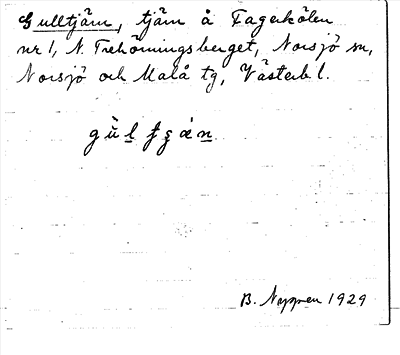 Gulltjärn, tjärn å Fagerkölen
nr 1, N. Trehörningsberget, Norsjö sn,
Norsjö och Malå tg, Västerb l.
B. Nygren 1929